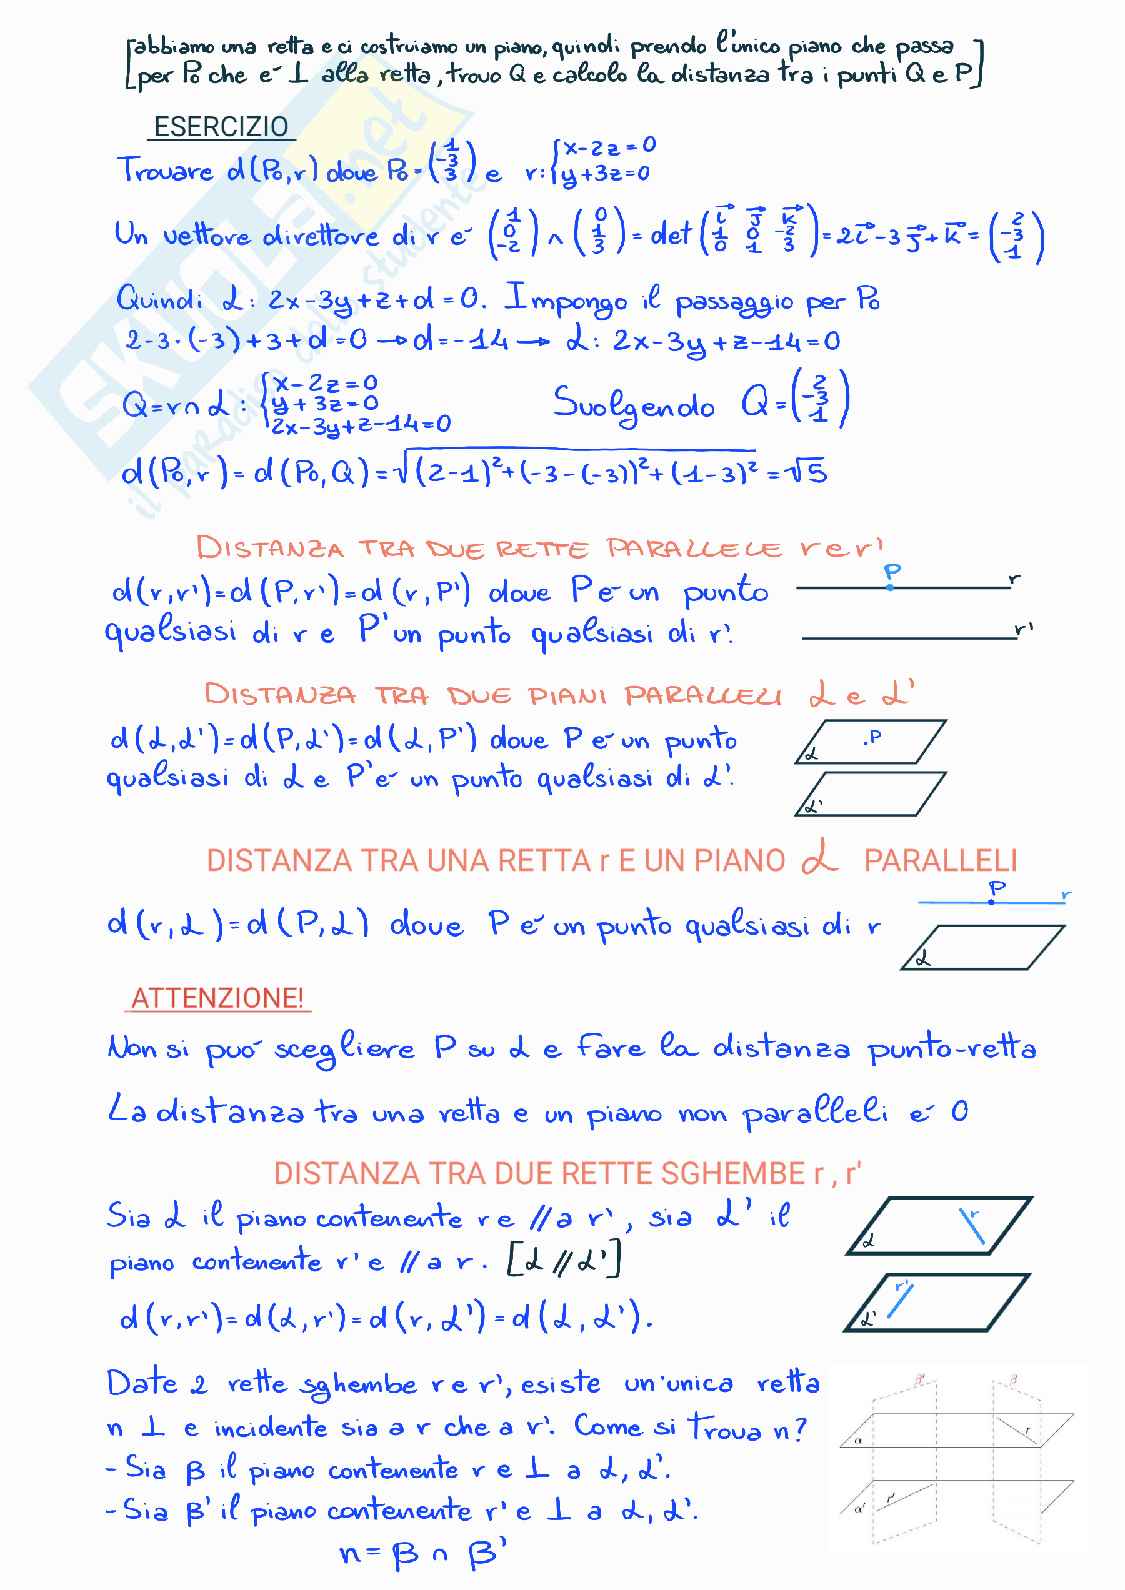 [abbiamo una retta e ci costruiamo un piano, quindi prendo l'unico piano che passa
per P₀ che e' ⊥ alla retta, trovo Q e calcolo la distanza tra i punti Q e P]
ESERCIZIO
Trovare d(P₀,r) dove P₀=(1 -3 3) e r:{x-2z=0 y+3z=0
Un vettore direttore di r e' (1 0 -2) ∧ (0 1 3) = det(i⃗ j⃗ k⃗ 1 0 -2 0 1 3) = 2i⃗-3j⃗+k⃗ = (2 -3 1)
Quindi α: 2x-3y+z+d=0. Impongo il passaggio per P₀
2-3·(-3)+3+d=0 → d=-14 → α: 2x-3y+z-14=0
Q=r∩α: {x-2z=0 y+3z=0 2x-3y+z-14=0 Svolgendo Q=(2 -3 1)
d(P₀,r)=d(P₀,Q)=√(2-1)²+(-3-(-3))²+(1-3)² =√5
DISTANZA TRA DUE RETTE PARALLELE r e r'
d(r,r')=d(P,r')=d(r,P') dove P e' un punto
qualsiasi di r e P' un punto qualsiasi di r'.
P
r
r'
DISTANZA TRA DUE PIANI PARALLELI α e α'
d(α,α')=d(P,α')=d(α,P') dove P e' un punto
qualsiasi di α e P' e' un punto qualsiasi di α'.
.P
α
α'
DISTANZA TRA UNA RETTA r E UN PIANO α PARALLELI
d(r,α)=d(P,α) dove P e' un punto qualsiasi di r
P
r
α
ATTENZIONE!
Non si puo' scegliere P su α e fare la distanza punto-retta
La distanza tra una retta e un piano non paralleli e' 0
DISTANZA TRA DUE RETTE SGHEMBE r , r'
Sia α il piano contenente r e // a r', sia α' il
piano contenente r' e // a r. [α // α']
d(r,r')=d(α,r')=d(r,α')=d(α,α').
r
α
r'
α'
Date 2 rette sghembe r e r', esiste un'unica retta
n ⊥ e incidente sia a r che a r'. Come si trova n?
- Sia β il piano contenente r e ⊥ a α, α'.
- Sia β' il piano contenente r' e ⊥ a α, α'.
n = β ∩ β'
β'
β
r
α
r'
α'
SKUOLA.net
il paradiso dello studente